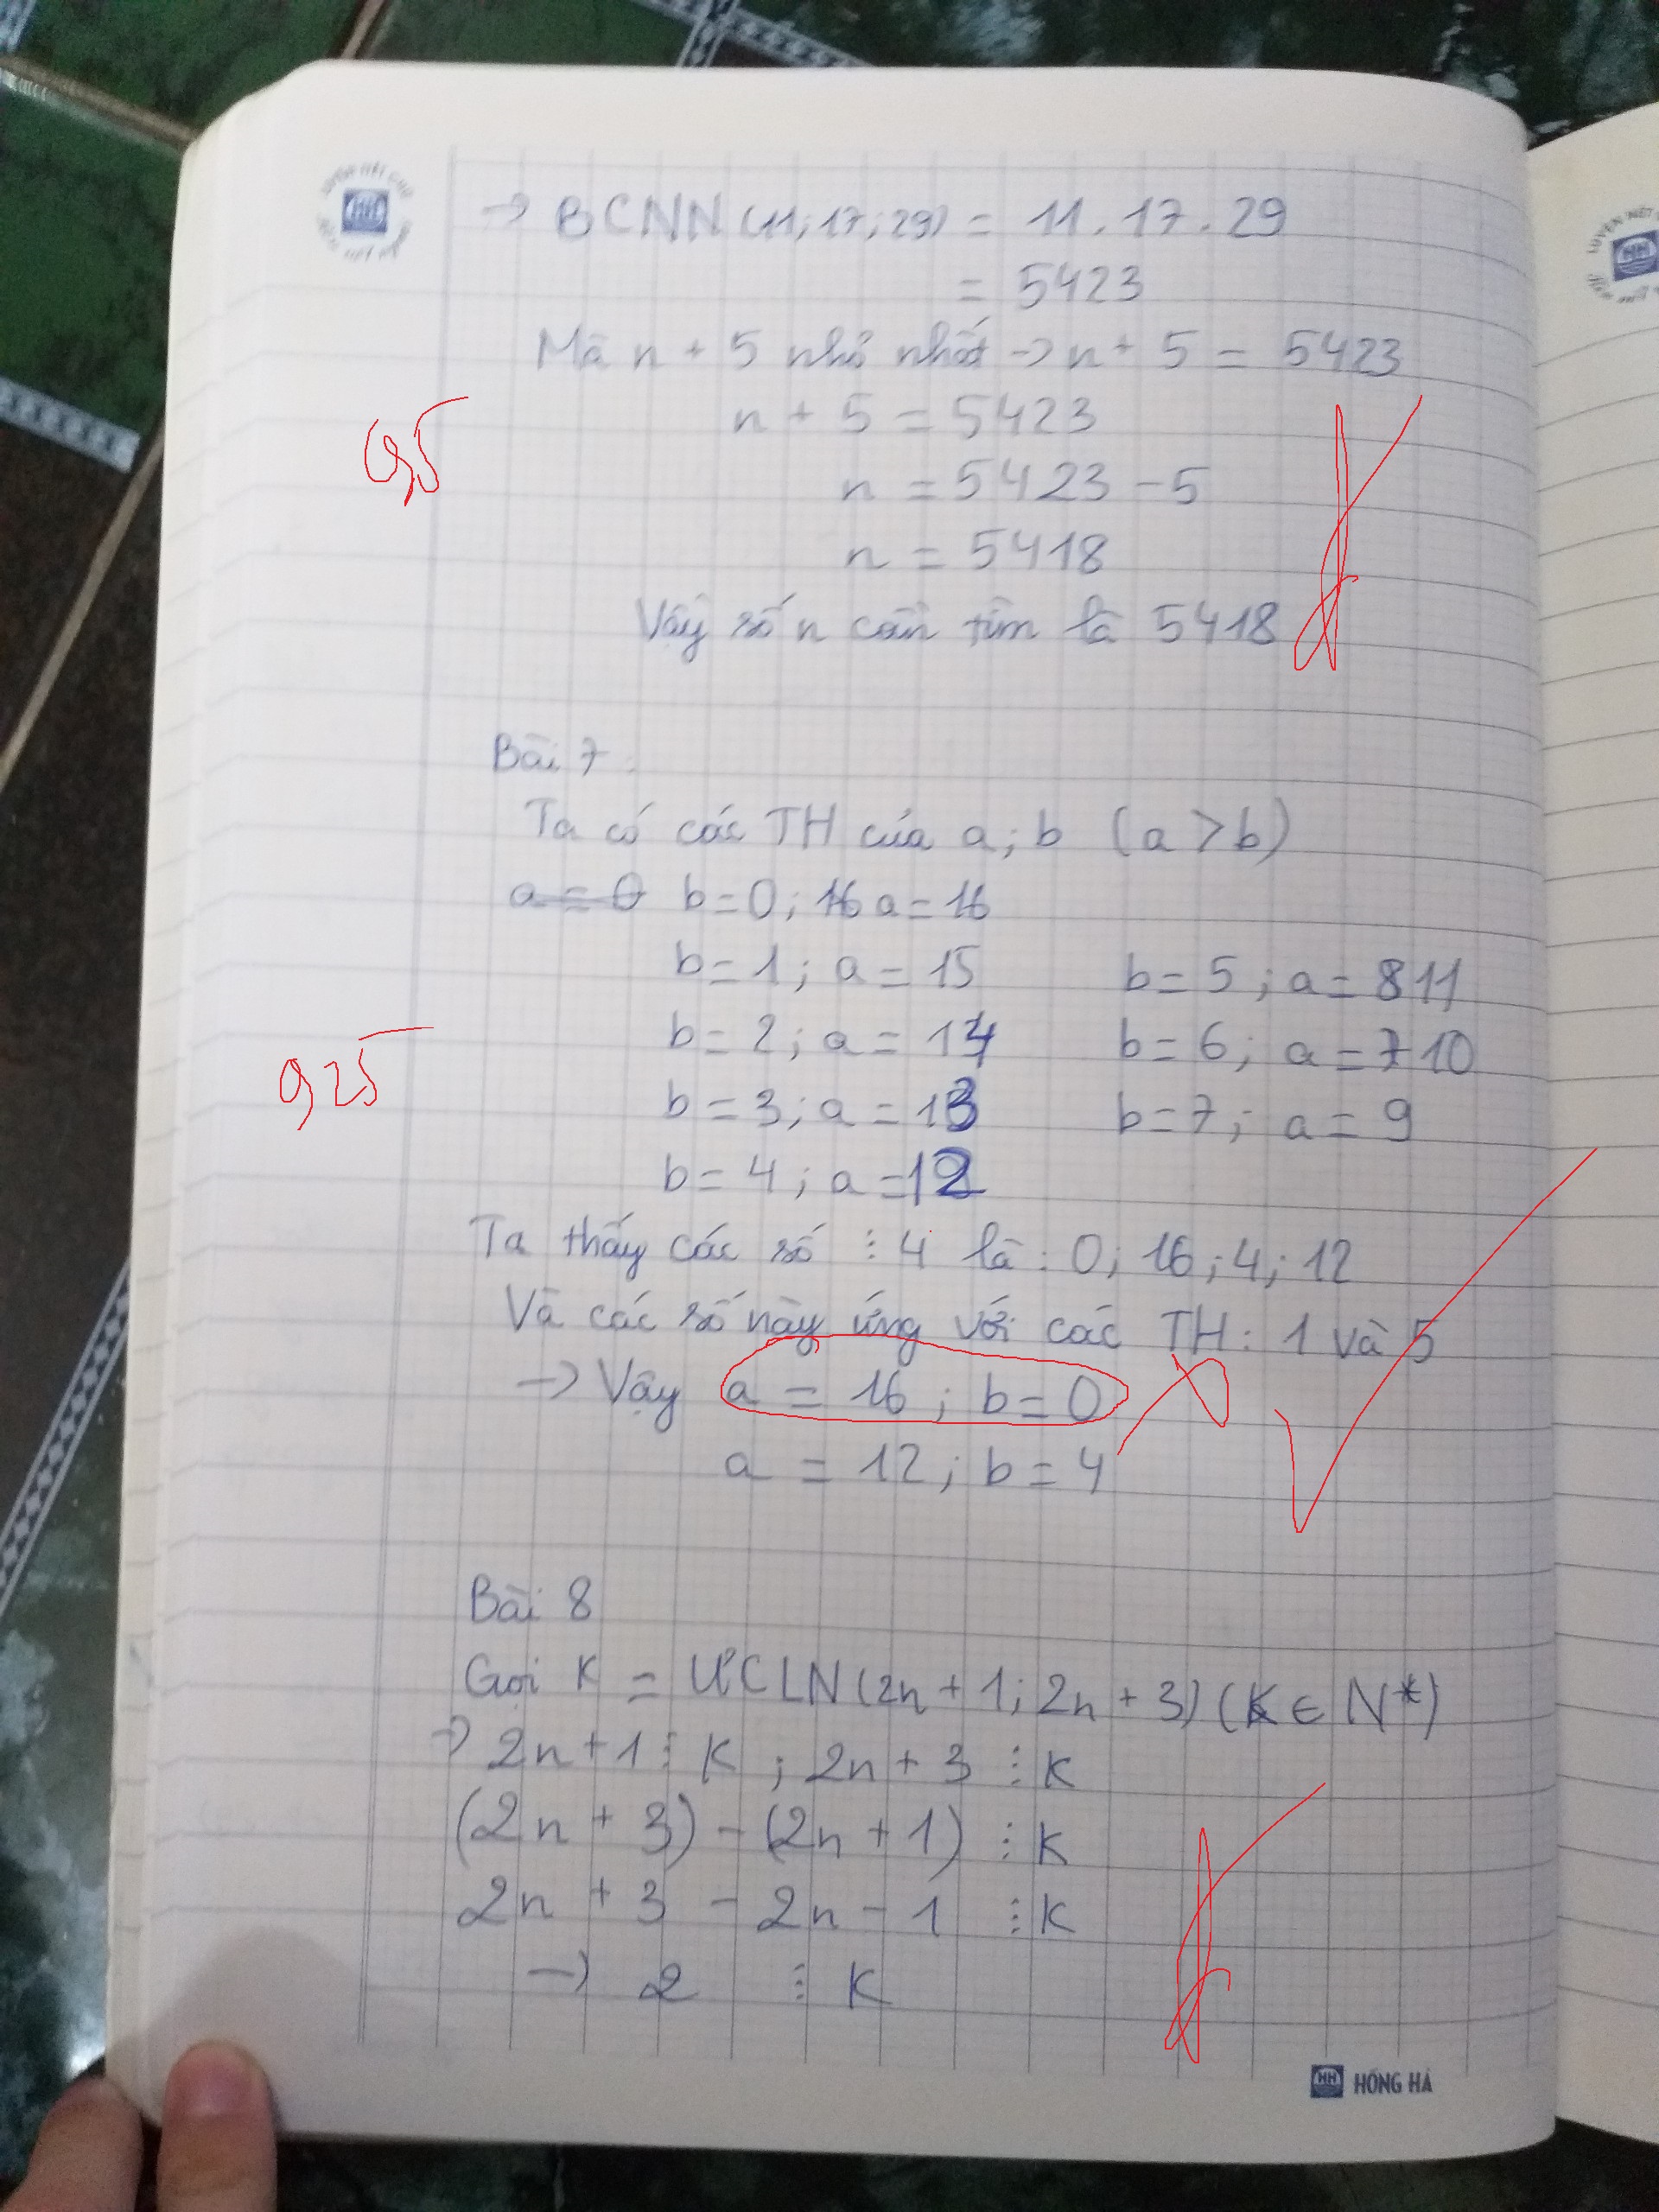 → BCNN (11; 17; 29) = 11 . 17 . 29
= 5423
Mà n + 5 nhỏ nhất → n + 5 = 5423
0,5
n + 5 = 5423
n = 5423 - 5
n = 5418
Vậy số n cần tìm là 5418
Bài 7:
Ta có các TH của a; b (a > b)
a = 0 b = 0; 16 a = 16
b = 1; a = 15 b = 5; a = 8 11
b = 2; a = 14 b = 6; a = 7 10
0,25
b = 3; a = 13 b = 7; a = 9
b = 4; a = 12
Ta thấy các số ⋮ 4 là: 0; 16; 4; 12
Và các số này ứng với các TH: 1 và 5
→ Vậy a = 16; b = 0
a = 12; b = 4
Bài 8
Gọi K = ƯCLN (2n + 1; 2n + 3) (K ∈ N*)
→ 2n + 1 ⋮ K; 2n + 3 ⋮ K
(2n + 3) - (2n + 1) ⋮ K
2n + 3 - 2n - 1 ⋮ K
→ 2 ⋮ K
HH HỒNG HÀ